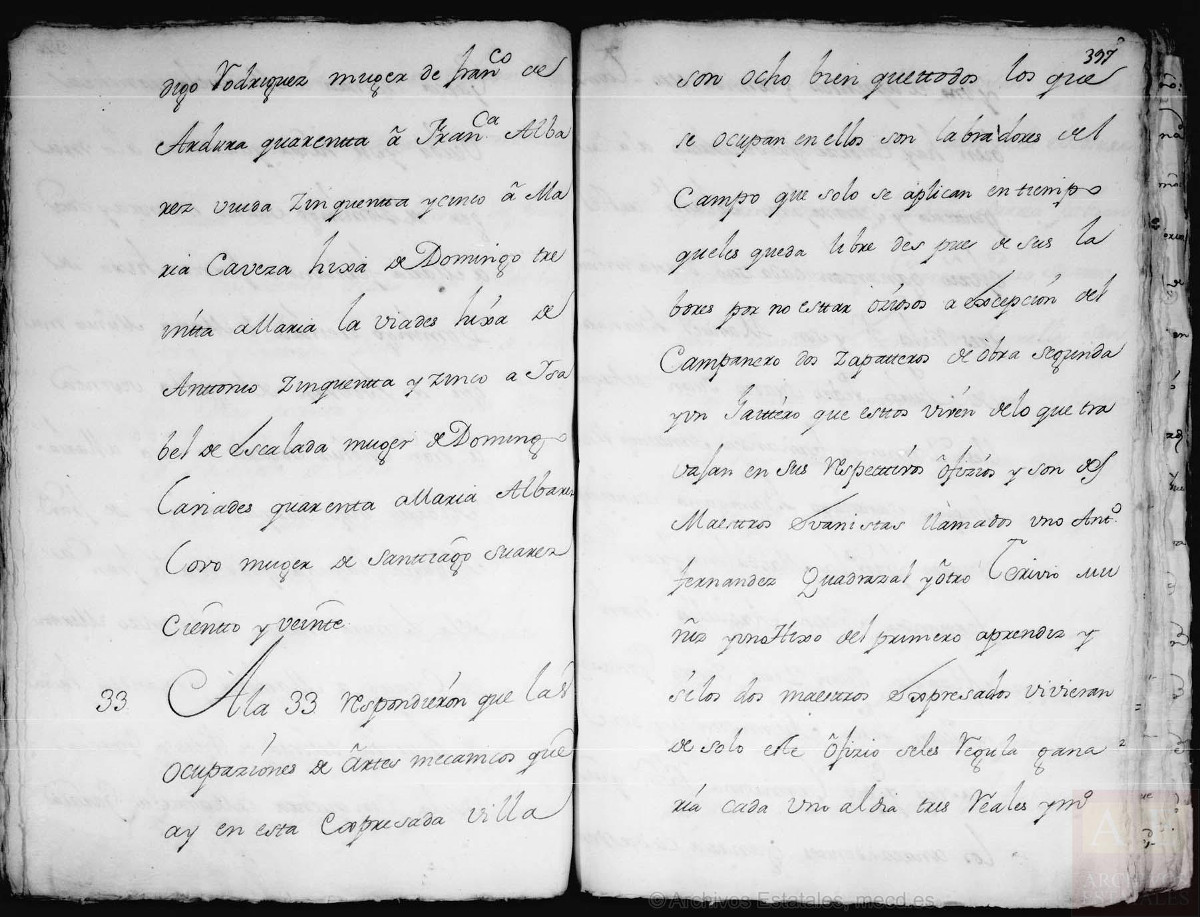 digo Rodriguez muger de fran.co de
Ardura quarenta â Fran.ca Alba
rez viuda zinquentta y cinco â Ma
ria Caveza hixa de Domingo tre
intta a Maria la viades hixa de
Anttonio zinquentta y zinco a Isa
bel de Escalada muger de Domingo
Cariades quarenta a Maria Albarez
Coro muger de Santtiago Suarez
Cientto y veinte
33 A la 33 respondieron que las
ocupaziones de Artes mecanicos que
ay en esta expresada villa
397
son ocho bien quettodos los que
se ocupan en ellos son labradores del
Campo que solo se aplican en tiempo
queles queda libre des pues de sus la
bores por no esttar oziosos a Excepción del
Campanero dos Zapatteros de obra segunda
y un que esttos viven de lo que tra
vajan en sus respecttivos ofizios y son dos
Maesttros Evanistas llamados uno Ant.º
fernandez Quadrazal y ôtro Torivio Mu
ñiz y uno Hixo del primero aprendiz y
si los dos maesttros Expresados vivieran
de solo este ofizio seles regula gana
ría cada uno al dia tres reales y m.º
© Archivos Estatales, mecd.es